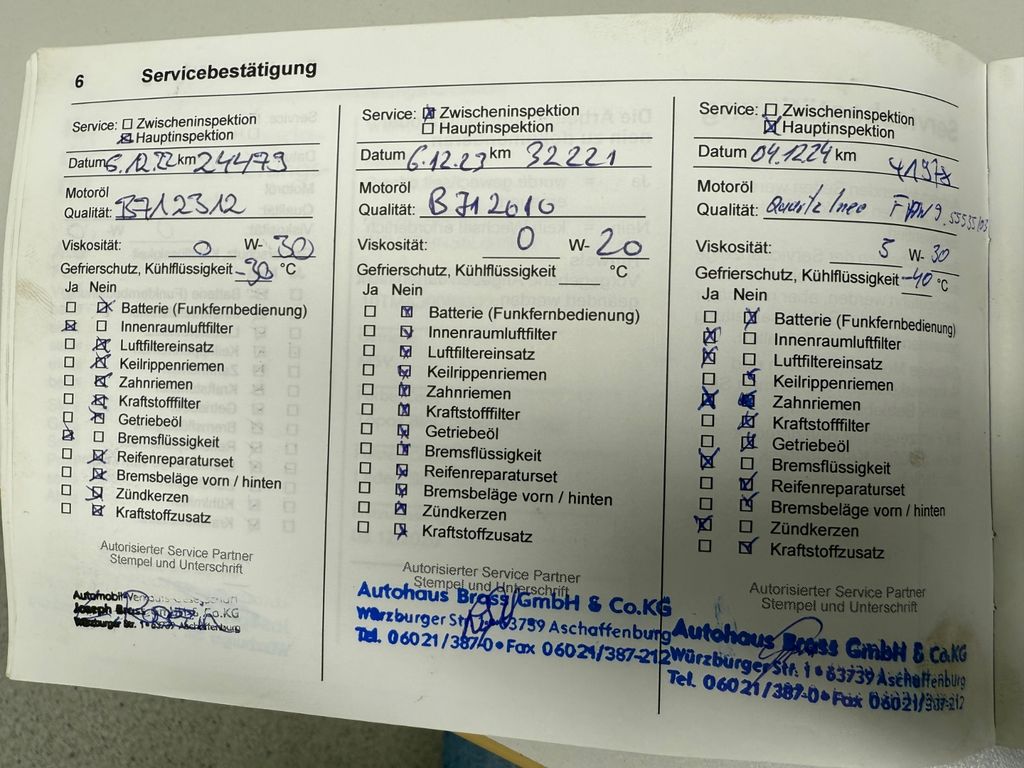 6 Servicebestätigung
Service: Zwischeninspektion
Hauptinspektion
Datum 6.12.22 km 24479
Motoröl
Qualität: B712312
Viskosität: 0 W- 30
Gefrierschutz, Kühlflüssigkeit -30 °C
Ja Nein
Batterie (Funkfernbedienung)
Innenraumluftfilter
Luftfiltereinsatz
Keilrippenriemen
Zahnriemen
Kraftstofffilter
Getriebeöl
Bremsflüssigkeit
Reifenreparaturset
Bremsbeläge vorn / hinten
Zündkerzen
Kraftstoffzusatz
Autorisierter Service Partner
Stempel und Unterschrift
Joseph Brass Co.KG
Würzburger Str. 1 Aschaffenburg
Service: Zwischeninspektion
Hauptinspektion
Datum 6.12.23 km 32221
Motoröl
Qualität: B712010
Viskosität: 0 W- 20
Gefrierschutz, Kühlflüssigkeit °C
Ja Nein
Batterie (Funkfernbedienung)
Innenraumluftfilter
Luftfiltereinsatz
Keilrippenriemen
Zahnriemen
Kraftstofffilter
Getriebeöl
Bremsflüssigkeit
Reifenreparaturset
Bremsbeläge vorn / hinten
Zündkerzen
Kraftstoffzusatz
Autorisierter Service Partner
Stempel und Unterschrift
Autohaus Brass GmbH & Co.KG
Würzburger Str. 63739 Aschaffenburg
Tel. 06021/387-0 • Fax 06021/387-212
Service: Zwischeninspektion
Hauptinspektion
Datum 04.12.24 km 41978
Motoröl
Qualität: Quartz Ineo
Viskosität: 5 W- 30
Gefrierschutz, Kühlflüssigkeit -40 °C
Ja Nein
Batterie (Funkfernbedienung)
Innenraumluftfilter
Luftfiltereinsatz
Keilrippenriemen
Zahnriemen
Kraftstofffilter
Getriebeöl
Bremsflüssigkeit
Reifenreparaturset
Bremsbeläge vorn / hinten
Zündkerzen
Kraftstoffzusatz
Autorisierter Service Partner
Stempel und Unterschrift
Autohaus Brass GmbH & Co.KG
Würzburger Str. 1 • 63739 Aschaffenburg
Tel. 06021/387-0 • Fax 06021/387-212